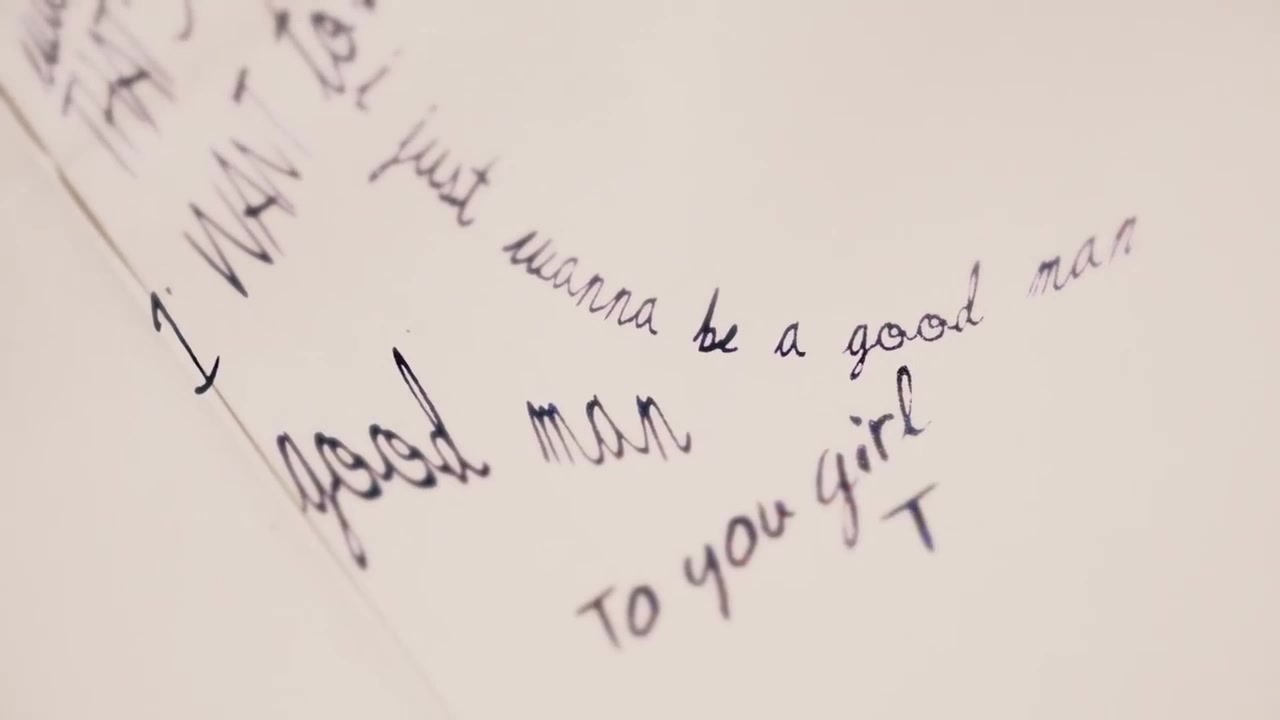 THAT'S
I WANT TO
i just wanna be a good man
good man
To you girl
T